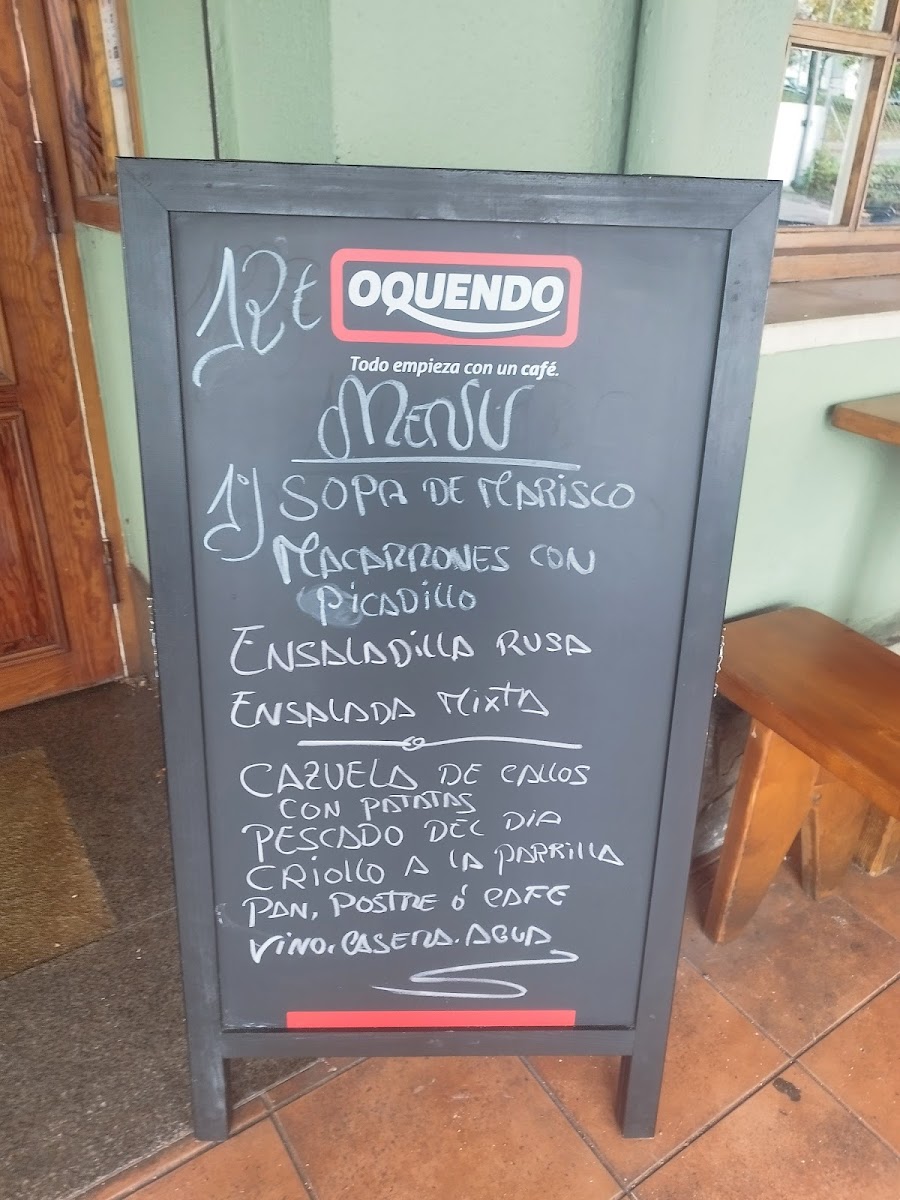 12€
OQUENDO
Todo empieza con un café.
MENU
1º) SOPA DE MARISCO
MACARRONES CON
PICADILLO
ENSALADILLA RUSA
ENSALADA MIXTA
CAZUELA DE CALLOS
CON PATATAS
PESCADO DEL DIA
CRIOLLO A LA PARRILLA
PAN, POSTRE ó CAFE
VINO. CASERA. AGUA